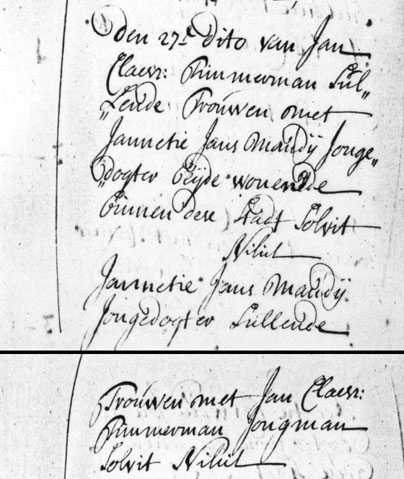 Den 27e. dito van Jan
Claesz: Timmerman Sul„
„Lende Trouwen met
Jannetie Jans Mandij Jonge„
„dogter Beijde wonende
Binnen dese Stadt Solvit
Nihil
Jannetie Jans Mandij
Jongedogter Sullende
Trouwen met Jan Claesz:
Timmerman Jongman
Solvit Nihil